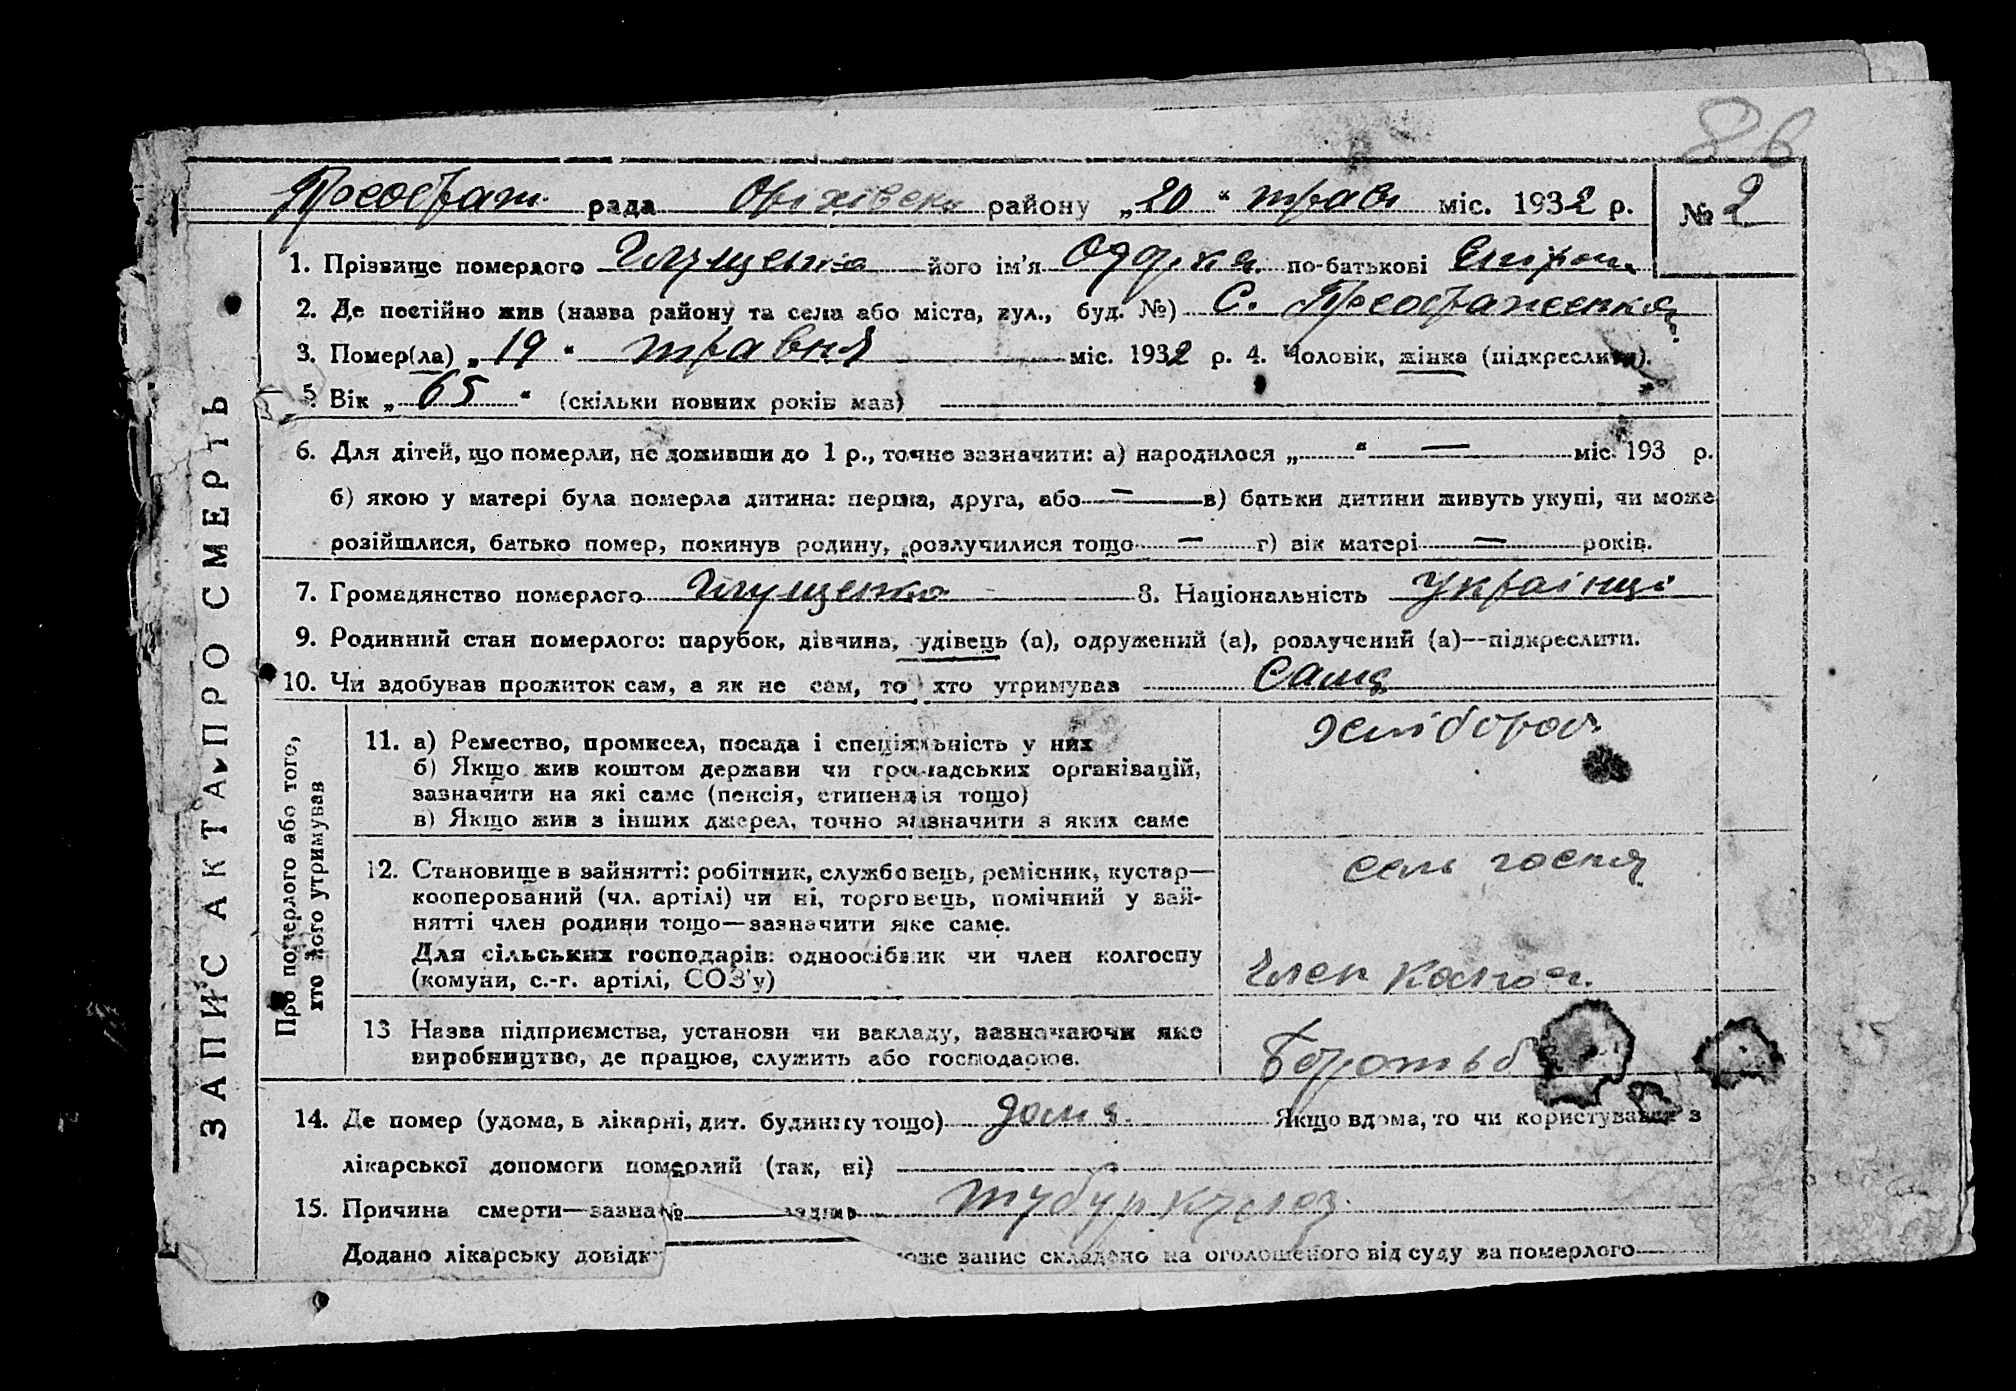 86
Преображ. рада Оріхівськ району „20" трав. міс. 1932 р. № 2
1. Прізвище померлого Глущенко його ім'я по-батькові
2. Де постійно жив (назва району та села або міста, вул., буд. №) С. Преображенка
3. Помер(ла) „19" травня міс. 1932 р. 4. Чоловік, жінка (підкреслити).
5. Вік „65" (скільки повних років мав)
6. Для дітей, що померли, не доживши до 1 р., точно зазначити: а) народилося „ " — міс. 193 р.
б) якою у матері була померла дитина: перша, друга, або — в) батьки дитини живуть укупі, чи може
розійшлися, батько помер, покинув родину, розлучилися тощо — г) вік матері — років.
7. Громадянство померлого Глущенко 8. Національність Українці
9. Родинний стан померлого: парубок, дівчина, удівець (а), одружений (а), розлучений (а)—підкреслити.
10. Чи здобував прожиток сам, а як не сам, то хто утримував сама
ЗАПИС АКТА ПРО СМЕРТЬ
Про померлого або того, хто його утримував
11. а) Ремество, промисел, посада і спеціяльність у них хліборов
б) Якщо жив коштом держави чи громадських організацій,
зазначити на які саме (пенсія, стипендія тощо)
в) Якщо жив з інших джерел, точно зазначити з яких саме
12. Становище в зайнятті: робітник, службовець, ремісник, кустар—
кооперований (чл. артілі) чи ні, торговець, помічний у зай-
нятті член родини тощо—зазначити яке саме.
сель госпя
Для сільських господарів: одноосібник чи член колгоспу
(комуни, с.-г. артілі, СОЗ'у) Член колгос.
13 Назва підприємства, установи чи закладу, зазначаючи яке
виробництво, де працює, служить або господарює.
Боротьб
14. Де помер (удома, в лікарні, дит. будинку тощо) дома. Якщо вдома, то чи користувався з
лікарської допомоги померлий (так, ні)
15. Причина смерти—зазна № тубуркульоз
Додано лікарську довідк може запис складено на оголошеного від суду за померлого